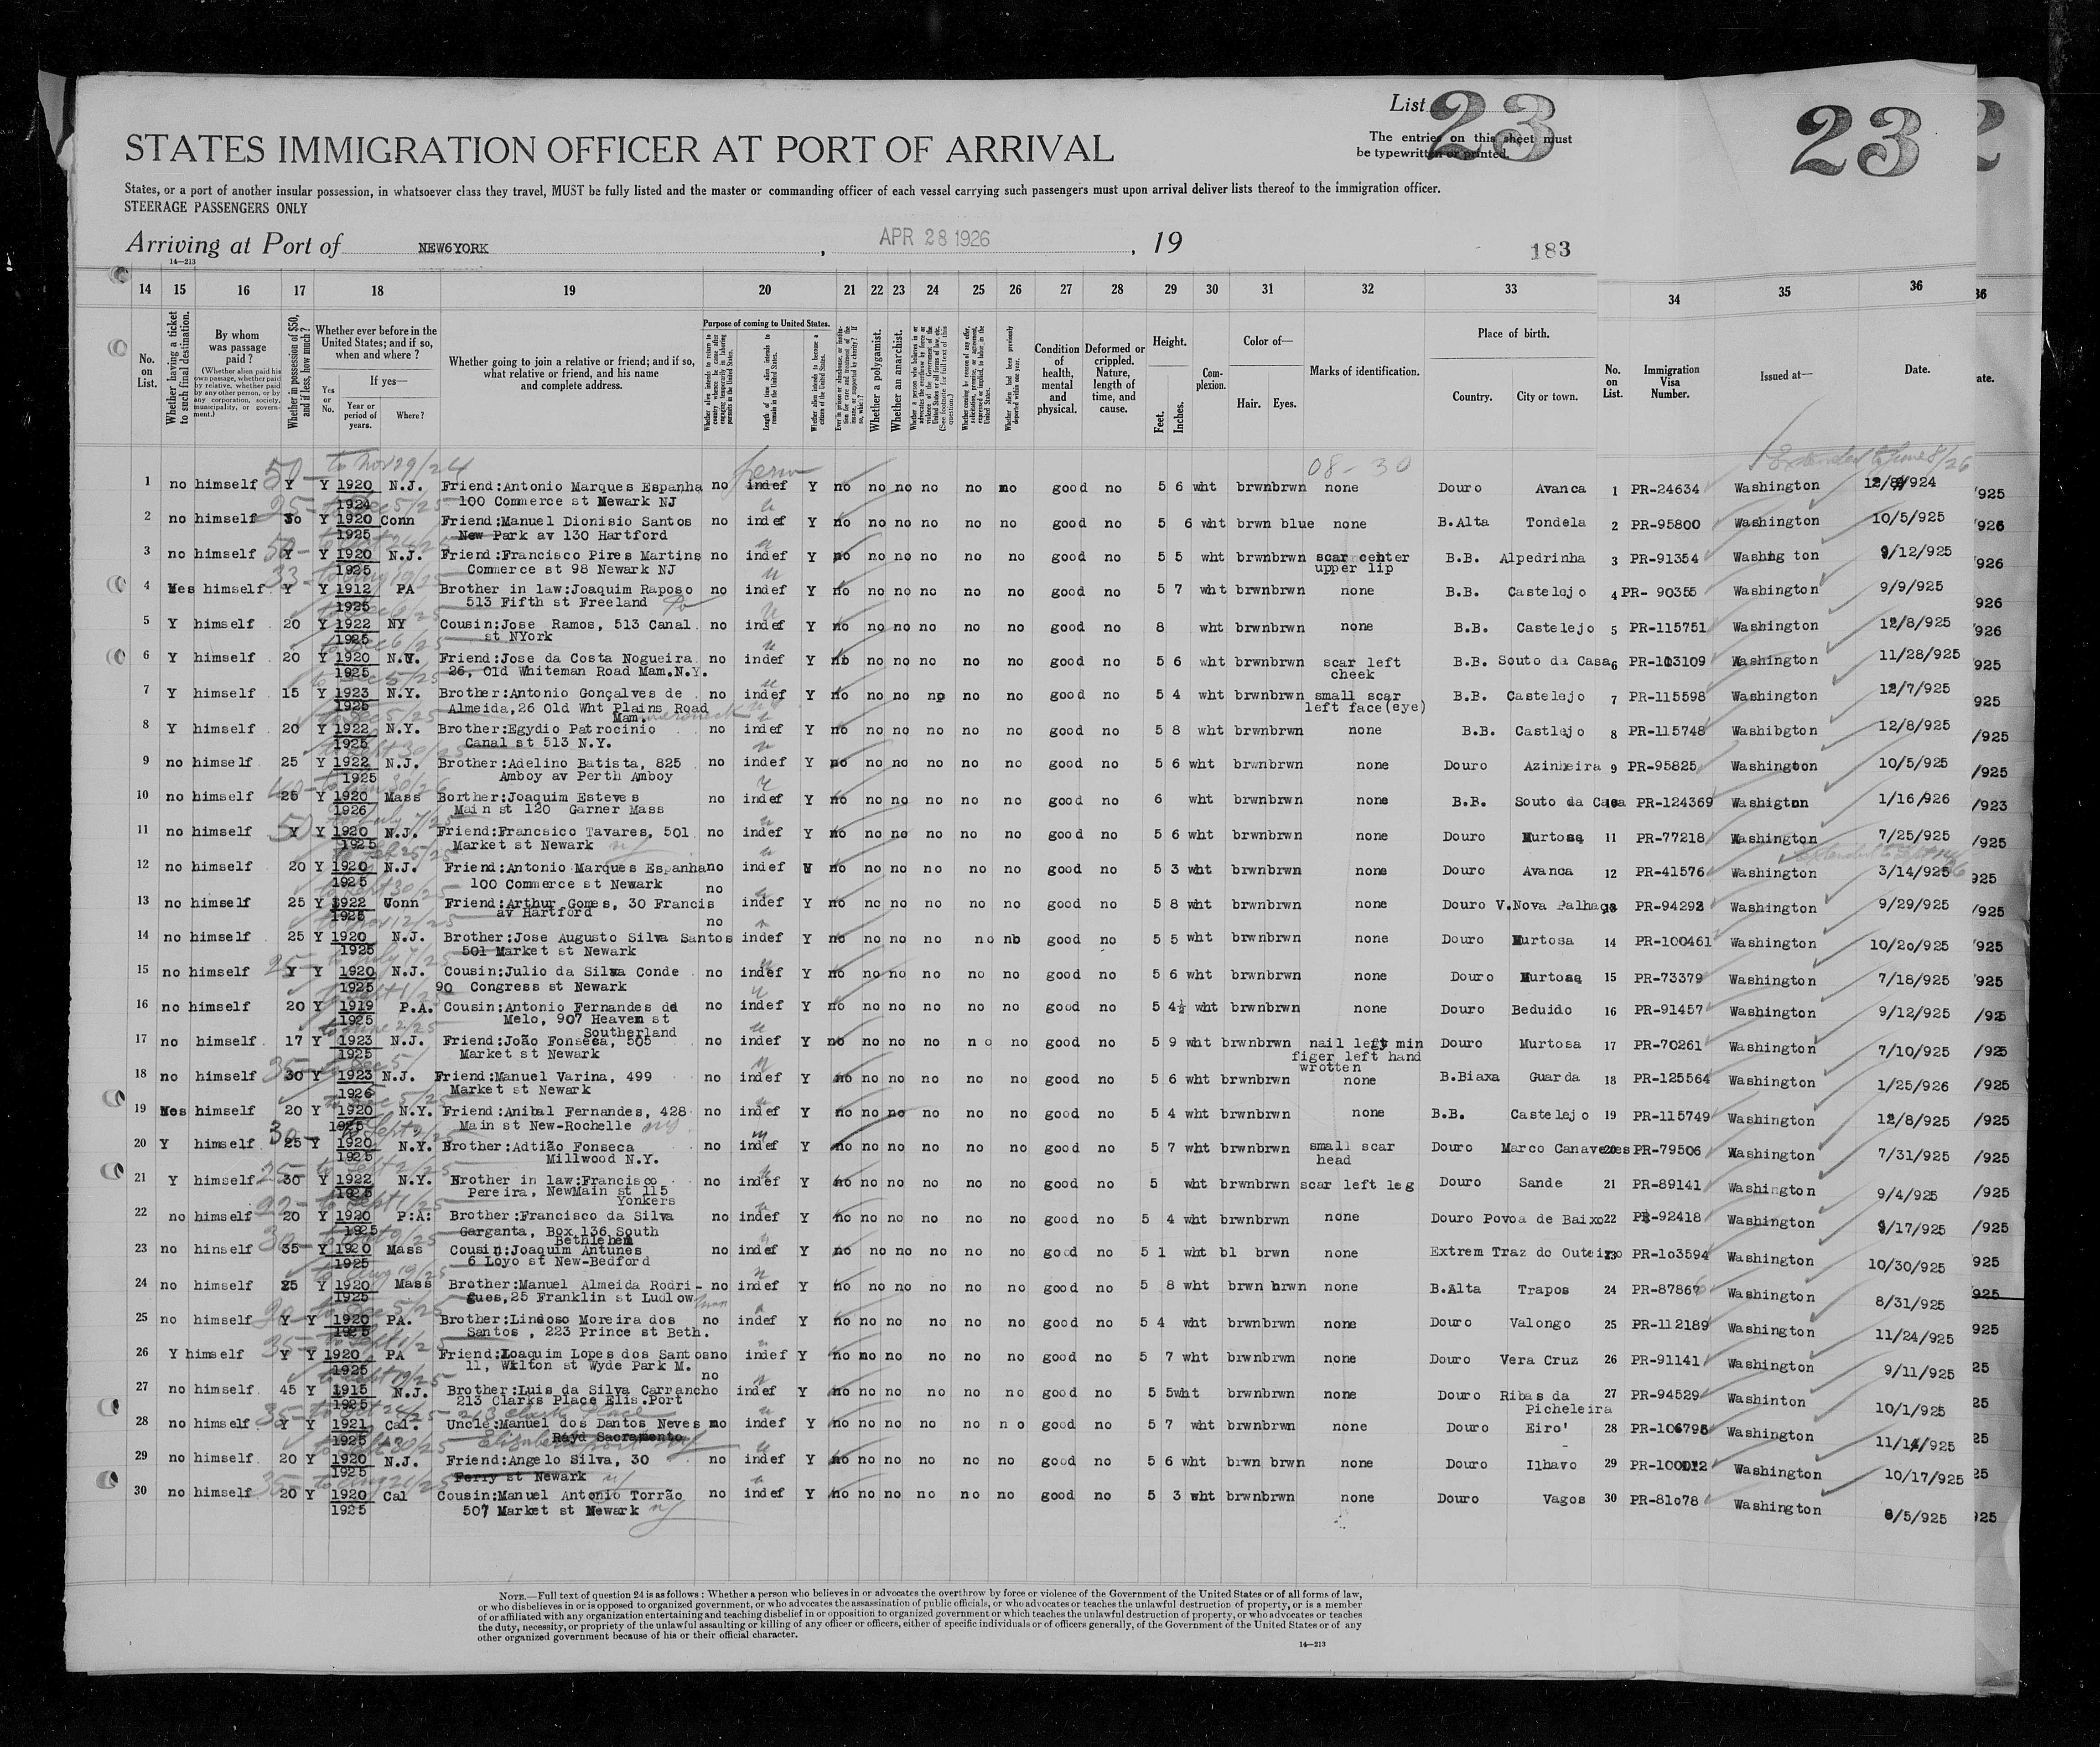 List 23
23
2
STATES IMMIGRATION OFFICER AT PORT OF ARRIVAL
The entries on this sheet must
be typewritten or printed.
States, or a port of another insular possession, in whatsoever class they travel, MUST be fully listed and the master or commanding officer of each vessel carrying such passengers must upon arrival deliver lists thereof to the immigration officer.
STEERAGE PASSENGERS ONLY
Arriving at Port of NEW6YORK, APR 28 1926, 19
183
14—213
14 15 16 17 18 19 20 21 22 23 24 25 26 27 28 29 30 31 32 33 34 35 36
No. on List.
Whether having a ticket to such final destination.
By whom was passage paid?
(Whether alien paid his own passage, whether paid by relative, whether paid by any other person, or by any corporation, society, municipality, or government.)
Whether in possession of $50, and if less, how much?
Whether ever before in the United States; and if so, when and where?
Yes or No.
If yes—
Year or period of years.
Where?
Whether going to join a relative or friend; and if so, what relative or friend, and his name and complete address.
Purpose of coming to United States.
Length of time alien intends to remain in the United States.
Whether alien intends to become a citizen of the United States.
Whether a polygamist.
Whether an anarchist.
Condition of health, mental and physical.
Deformed or crippled. Nature, length of time, and cause.
Height.
Feet. Inches.
Complexion.
Color of—
Hair. Eyes.
Marks of identification.
Place of birth.
Country. City or town.
No. on List.
Immigration Visa Number.
Issued at—
Date.
50 — to Nov 29/24 perm 08-30 Extended to June 8/26
1 no himself Y Y 1920 N.J. Friend:Antonio Marques Espanha no indef Y no no no no no no good no 5 6 wht brwnbrwn none Douro Avanca 1 PR-24634 Washington 12/8/924
1924 100 Commerce st Newark NJ
2 no himself Y 1920 Conn Friend:Manuel Dionisio Santos no indef Y no no no no no no good no 5 6 wht brwn blue none B.Alta Tondela 2 PR-95800 Washington 10/5/925
1925 New Park av 130 Hartford
3 no himself Y Y 1920 N.J. Friend:Francisco Pires Martins no indef Y no no no no no no good no 5 5 wht brwnbrwn scar center B.B. Alpedrinha 3 PR-91354 Washing ton 9/12/925
1925 Commerce st 98 Newark NJ upper lip
4 Yes himself Y Y 1912 PA Brother in law:Joaquim Raposo no indef Y no no no no no no good no 5 7 wht brwnbrwn none B.B. Castelejo 4 PR- 90355 Washington 9/9/925
1925 513 Fifth st Freeland Pa
5 Y himself 20 Y 1922 NY Cousin:Jose Ramos, 513 Canal no indef Y no no no no no no good no 8 wht brwnbrwn none B.B. Castelejo 5 PR-115751 Washington 12/8/925
1925 st NYork
6 Y himself 20 Y 1920 N.Y. Friend:Jose da Costa Nogueira no indef Y no no no no no no good no 5 6 wht brwnbrwn scar left B.B. Souto da Casa 6 PR-113109 Washington 11/28/925
1925 26, Old Whiteman Road Mam.N.Y. cheek
7 Y himself 15 Y 1923 N.Y. Brother:Antonio Gonçalves de no indef Y no no no no no no good no 5 4 wht brwnbrwn small scar B.B. Castelejo 7 PR-115598 Washington 12/7/925
1925 Almeida,26 Old Wht Plains Road left face(eye)
Mam.
8 Y himself 20 Y 1922 N.Y. Brother:Egydio Patrocinio no indef Y no no no no no no good no 5 8 wht brwnbrwn none B.B. Castlejo 8 PR-115748 Washibgton 12/8/925
1925 Canal st 513 N.Y.
9 no himself 25 Y 1922 N.J. Brother:Adelino Batista, 825 no indef Y no no no no no no good no 5 6 wht brwnbrwn none Douro Azinheira 9 PR-95825 Washington 10/5/925
1925 Amboy av Perth Amboy
10 no himself 25 Y 1920 Mass Borther:Joaquim Esteves no indef Y no no no no no no good no 6 wht brwnbrwn none B.B. Souto da Casa 10 PR-124369 Washigton 1/16/926
1926 Main st 120 Garner Mass
11 no himself Y Y 1920 N.J. Friend:Francsico Tavares, 501 no indef Y no no no no no no good no 5 6 wht brwnbrwn none Douro Murtosa 11 PR-77218 Washington 7/25/925
1925 Market st Newark
12 no himself 20 Y 1920 N.J. Friend:Antonio Marques Espanha no indef no no no no no no good no 5 3 wht brwnbrwn none Douro Avanca 12 PR-41576 Washington 3/14/925
1925 100 Commerce st Newark
13 no himself 25 Y 1922 Conn Friend:Arthur Gomes, 30 Francis no indef Y no no no no no no good no 5 8 wht brwnbrwn none Douro V.Nova Palhaça 13 PR-94292 Washington 9/29/925
1925 av Hartford
14 no himself 25 Y 1920 N.J. Brother:Jose Augusto Silva Santos no indef Y no no no no no no good no 5 5 wht brwnbrwn none Douro Murtosa 14 PR-100461 Washington 10/20/925
1925 501 Market st Newark
15 no himself Y Y 1920 N.J. Cousin:Julio da Silva Conde no indef Y no no no no no no good no 5 6 wht brwnbrwn none Douro Murtosa 15 PR-73379 Washington 7/18/925
1925 90 Congress st Newark
16 no himself 20 Y 1919 P.A. Cousin:Antonio Fernandes de no indef Y no no no no no no good no 5 4½ wht brwnbrwn none Douro Beduido 16 PR-91457 Washington 9/12/925
1925 Melo, 907 Heaven st
Southerland
17 no himself 17 Y 1923 N.J. Friend:João Fonseca, 505 no indef Y no no no no no no good no 5 9 wht brwnbrwn nail left min Douro Murtosa 17 PR-70261 Washington 7/10/925
1925 Market st Newark figer left hand
wrotten
18 no himself 30 Y 1923 N.J. Friend:Manuel Varina, 499 no indef Y no no no no no no good no 5 6 wht brwnbrwn none B.Biaxa Guarda 18 PR-125564 Washington 1/25/926
1926 Market st Newark
19 Yes himself 20 Y 1920 N.Y. Friend:Anibal Fernandes, 428 no indef Y no no no no no no good no 5 4 wht brwnbrwn none B.B. Castelejo 19 PR-115749 Washington 12/8/925
1925 Main st New-Rochelle
20 Y himself 25 Y 1920 N.Y. Brother:Adtião Fonseca no indef Y no no no no no no good no 5 7 wht brwnbrwn small scar Douro Marco Canavezes 20 PR-79506 Washington 7/31/925
1925 Millwood N.Y. head
21 Y himself 30 Y 1922 N.Y. Brother in law:Francisco no indef Y no no no no no no good no 5 wht brwnbrwn scar left leg Douro Sande 21 PR-89141 Washington 9/4/925
1925 Pereira, NewMain st 115
Yonkers
22 no himself 20 Y 1920 P:A: Brother:Francisco da Silva no indef Y no no no no no no good no 5 4 wht brwnbrwn none Douro Povoa de Baixo 22 PR-92418 Washington 9/17/925
1925 Garganta, Box 136 South
Bethlehem
23 no hinself 35 Y 1920 Mass Cousin:Joaquim Antunes no indef Y no no no no no no good no 5 1 wht bl brwn none Extrem Traz do Outeiro 23 PR-103594 Washington 10/30/925
1925 6 Loyo st New-Bedford
24 no himself 25 Y 1920 Mass Brother:Manuel Almeida Rodri- no indef Y no no no no no no good no 5 8 wht brwn brwn none B.Alta Trapos 24 PR-87867 Washington 8/31/925
1925 gues,25 Franklin st Ludlow
25 no himself Y Y 1920 PA. Brother:Lindoso Moreira dos no indef Y no no no no no no good no 5 4 wht brwnbrwn none Douro Valongo 25 PR-112189 Washington 11/24/925
1925 Santos , 223 Prince st Beth.
26 Y himself Y Y 1920 PA Friend:Loaquim Lopes dos Santos no indef Y no no no no no no good no 5 7 wht brwnbrwn none Douro Vera Cruz 26 PR-91141 Washington 9/11/925
1925 11, Wilton st Wyde Park M.
27 no himself 45 Y 1915 N.J. Brother:Luis da Silva Carrancho no indef Y no no no no no no good no 5 5wht brwnbrwn none Douro Ribas da 27 PR-94529 Washinton 10/1/925
1925 213 Clarks Place Elis.Port Picheleira
28 no himself Y Y 1921 Cal. Uncle:Manuel dos Dantos Neves no indef Y no no no no no no good no 5 7 wht brwnbrwn none Douro Eiro' 28 PR-106795 Washington 11/14/925
1925 Rayd Sacramento
29 no himself 20 Y 1920 N.J. Friend:Angelo Silva, 30 no indef Y no no no no no no good no 5 6 wht brwn brwn none Douro Ilhavo 29 Washington 10/17/925
1925 Ferry st Newark
30 no himself 20 Y 1920 Cal Cousin:Manuel Antonio Torrão no indef Y no no no no no no good no 5 3 wht brwnbrwn none Douro Vagos 30 PR-81078 Washington 8/5/925
1925 507 Market st Newark
NOTE.—Full text of question 24 is as follows: Whether a person who believes in or advocates the overthrow by force or violence of the Government of the United States or of all forms of law,
or who disbelieves in or is opposed to organized government, or who advocates the assassination of public officials, or who advocates or teaches the unlawful destruction of property, or is a member
of or affiliated with any organization entertaining and teaching disbelief in or opposition to organized government or which teaches the unlawful destruction of property, or who advocates or teaches
the duty, necessity, or propriety of the unlawful assaulting or killing of any officer or officers, either of specific individuals or of officers generally, of the Government of the United States or of any
other organized government because of his or their official character.
14—213